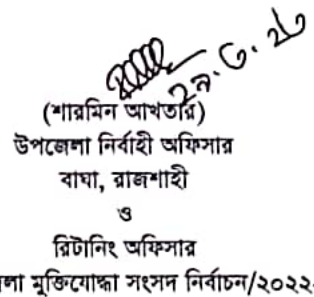 ২৯.৩.২৩
(শারমিন আখতার)
উপজেলা নির্বাহী অফিসার
বাঘা, রাজশাহী
ও
রিটার্নিং অফিসার
লা মুক্তিযোদ্ধা সংসদ নির্বাচন/২০২২